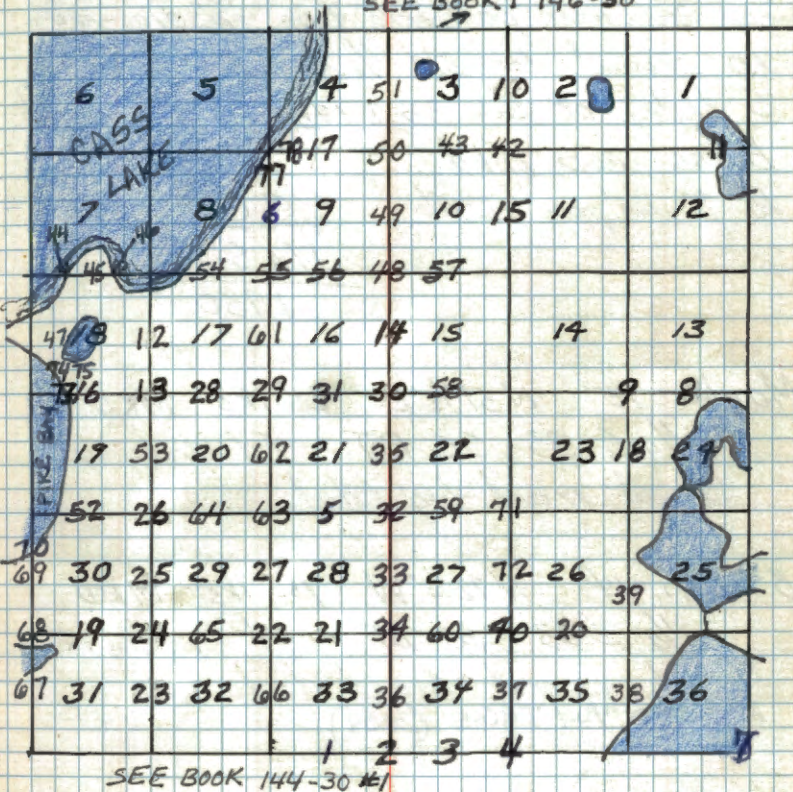 SEE BOOK 146-30
6 5 4 51 3 10 2 1
CASS
LAKE
78 17 50 43 42 11
77
7 8 6 9 49 10 15 11 12
44 46
45 54 55 56 48 57
47 18 12 17 61 16 14 15 14 13
74 75
73 16 13 28 29 31 30 58 9 8
PIKE BAY
19 53 20 62 21 35 22 23 18 24
52 26 64 63 5 32 59 71
70
69 30 25 29 27 28 33 27 72 26 25
39
68 19 24 65 22 21 34 60 40 20
67 31 23 32 66 33 36 34 37 35 38 36
1 2 3 4
SEE BOOK 144-30 #1